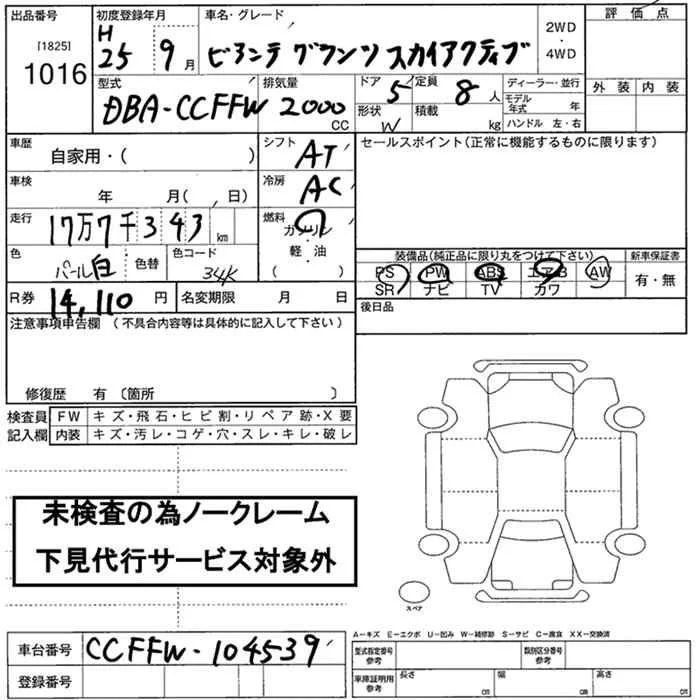 出品番号 初度登録年月 車名・グレード 評価点
[1825] H 2WD
1016 25 9月 ビアンテ グランツ スカイアクティブ ・
4WD
型式 排気量 ドア 5 定員 8人 ディーラー・並行 外装 内装
DBA-CCFFW 2000 CC 形状 W 積載 kg モデル年式 年
ハンドル 左・右
車歴 シフト セールスポイント(正常に機能するものに限ります)
自家用・( ) AT
車検 冷房
年 月( 日) AC
走行 17万7千343 km 燃料
ガソリン
色 色替 色コード 軽・油 装備品(純正品に限り丸をつけて下さい) 新車保証書
パール白 34K ( ) PS PW ABS エアB AW 有・無
SR ナビ TV カワ
R券 14,110 円 名変期限 月 日 後日品
注意事項申告欄 (不具合内容等は具体的に記入して下さい)
修復歴 有 (箇所 )
検査員 FW キズ・飛石・ヒビ割・リペア跡・X要
記入欄 内装 キズ・汚レ・コゲ・穴・スレ・キレ・破レ
未検査の為ノークレーム
下見代行サービス対象外
スペア
A-キズ E-エクボ U-凹み W-補修跡 S-サビ C-腐食 XX-交換済
車台番号 CCFFW-104539 型式指定番号 参考 類別区分番号 参考
登録番号 車庫証明用 参考 長さ cm 幅 cm 高さ cm